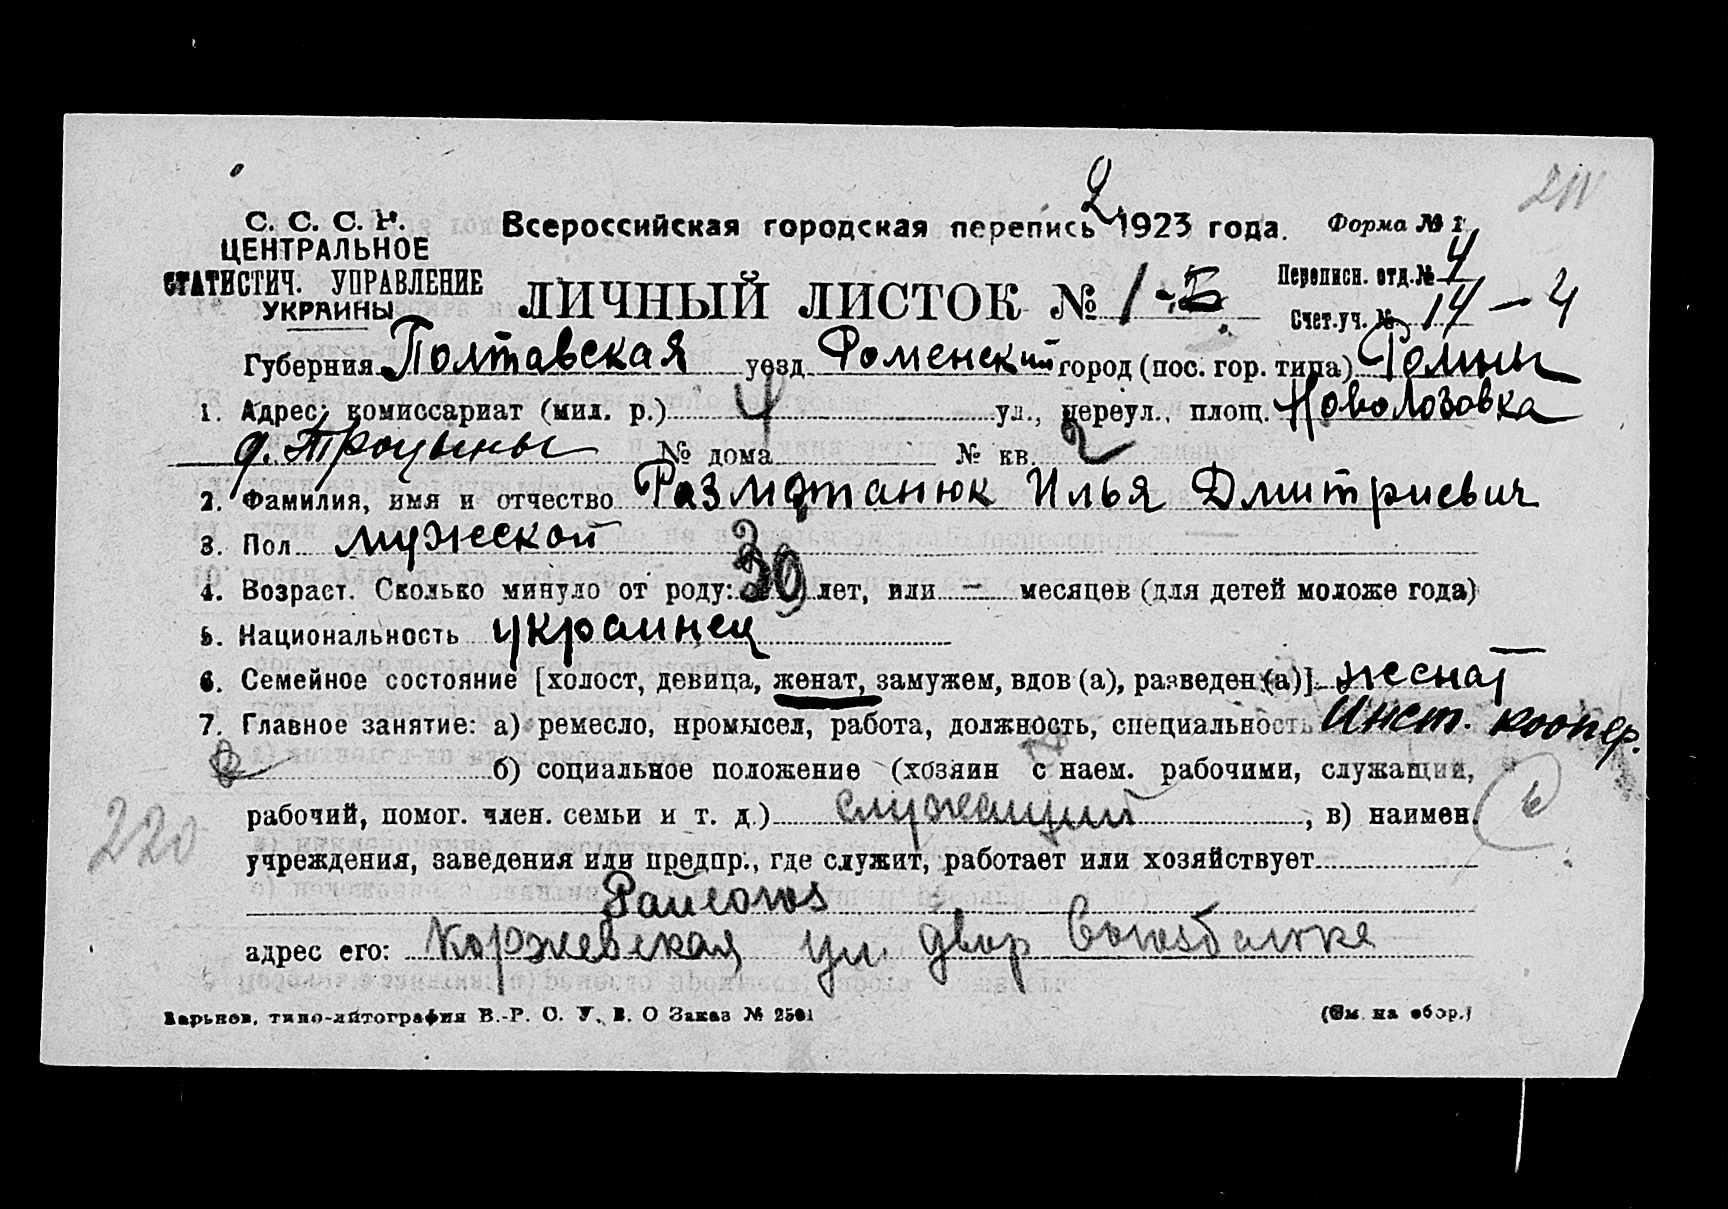 С. С. С. Р.
ЦЕНТРАЛЬНОЕ
СТАТИСТИЧ. УПРАВЛЕНИЕ
УКРАИНЫ
Всероссийская городская перепись 1923 года.
Форма № 1
ЛИЧНЫЙ ЛИСТОК № 1-Б
Переписн. отд. № 4
Счет. уч. № 14 — 4
Губерния Полтавская уезд Роменский город (пос. гор. типа) Ромны
1. Адрес: комиссариат (мил. р.) 4 ул., переул., площ. Новолозовка
д. Троцыны № дома № кв. 2
2. Фамилия, имя и отчество Размотанюк Илья Дмитриевич
3. Пол мужеской
4. Возраст. Сколько минуло от роду: 30 лет, или — месяцев (для детей моложе года)
5. Национальность украинец
6. Семейное состояние [холост, девица, женат, замужем, вдов (а), разведен (а)] женат
7. Главное занятие: а) ремесло, промысел, работа, должность, специальность Инст. коопер.
б) социальное положение (хозяин с наем. рабочими, служащий,
рабочий, помог. член. семьи и т. д.) служащий, в) наимен.
220
учреждения, заведения или предпр., где служит, работает или хозяйствует
Райсоюз
адрес его: Коржевская ул. двор Союзбанка
Харьков, типо-литография В.-Р. О. У. В. О Заказ № 2501
(См. на обор.)